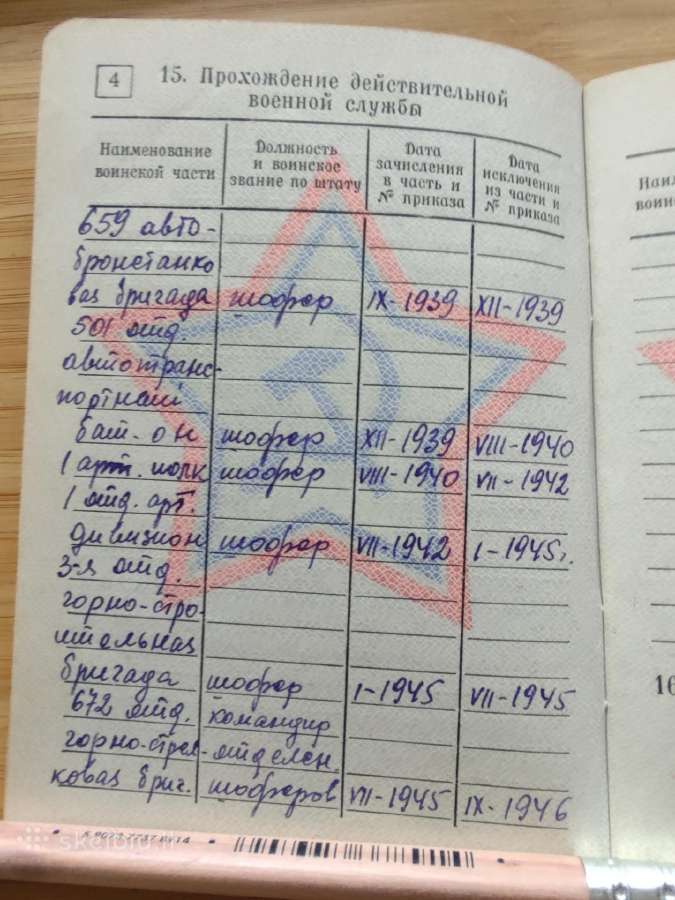 4
15. Прохождение действительной
военной службы
Наименование
воинской части
Должность
и воинское
звание по штату
Дата
зачисления
в часть и
№ приказа
Дата
исключения
из части и
№ приказа
659 авто-
бронетанко
вая бригада шофер IX-1939 XII-1939
501 отд.
автотранс-
портный
бат-он шофер XII-1939 VIII-1940
1 арт. полк шофер VIII-1940 VII-1942
1 отд. арт.
дивизион шофер VII-1942 I-1945г.
3-я отд.
горно-стро-
ительная
бригада шофер I-1945 VII-1945
672 отд. командир
горно-стрел- отделен.
ковая бриг. шоферов VII-1945 IX-1946
Наи
воин
16